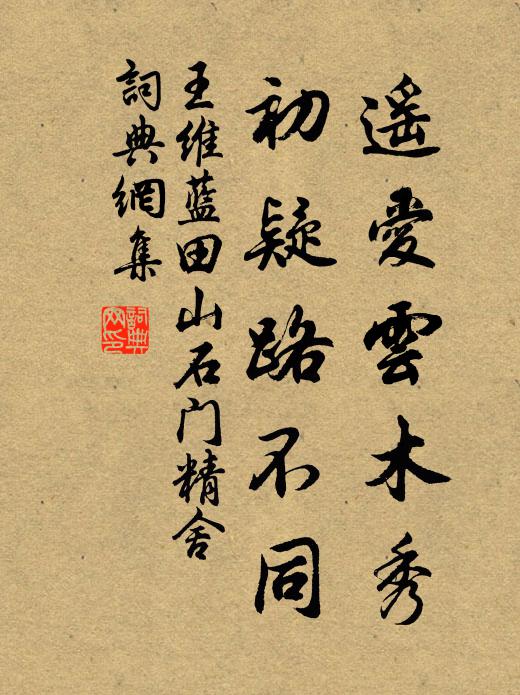 遥愛雲木秀
初疑路不同
王維藍田山石门精舍
詞典網集
詞典网印